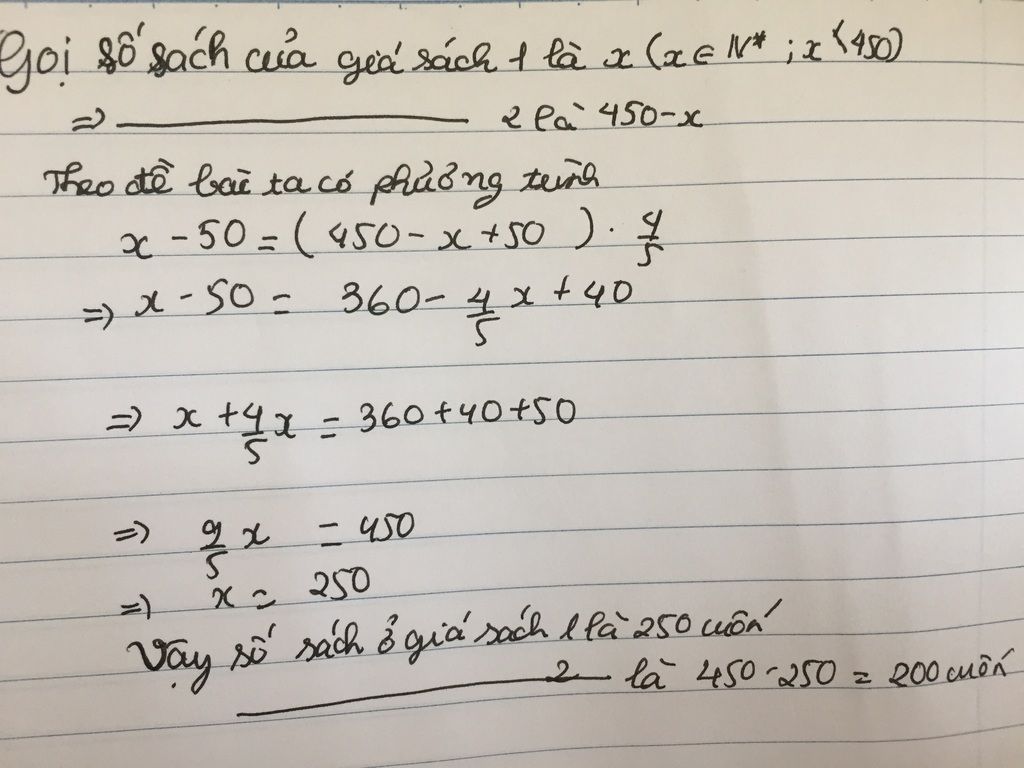 Gọi số sách của giá sách 1 là x (x ∈ N* ; x < 450)
=> ——— 2 là 450-x
Theo đề bài ta có phương trình
x - 50 = ( 450 - x + 50 ) . 4/5
=> x - 50 = 360 - 4/5 x + 40
=> x + 4/5 x = 360 + 40 + 50
=> 9/5 x = 450
=> x = 250
Vậy số sách ở giá sách 1 là 250 cuốn
——— 2 là 450 - 250 = 200 cuốn